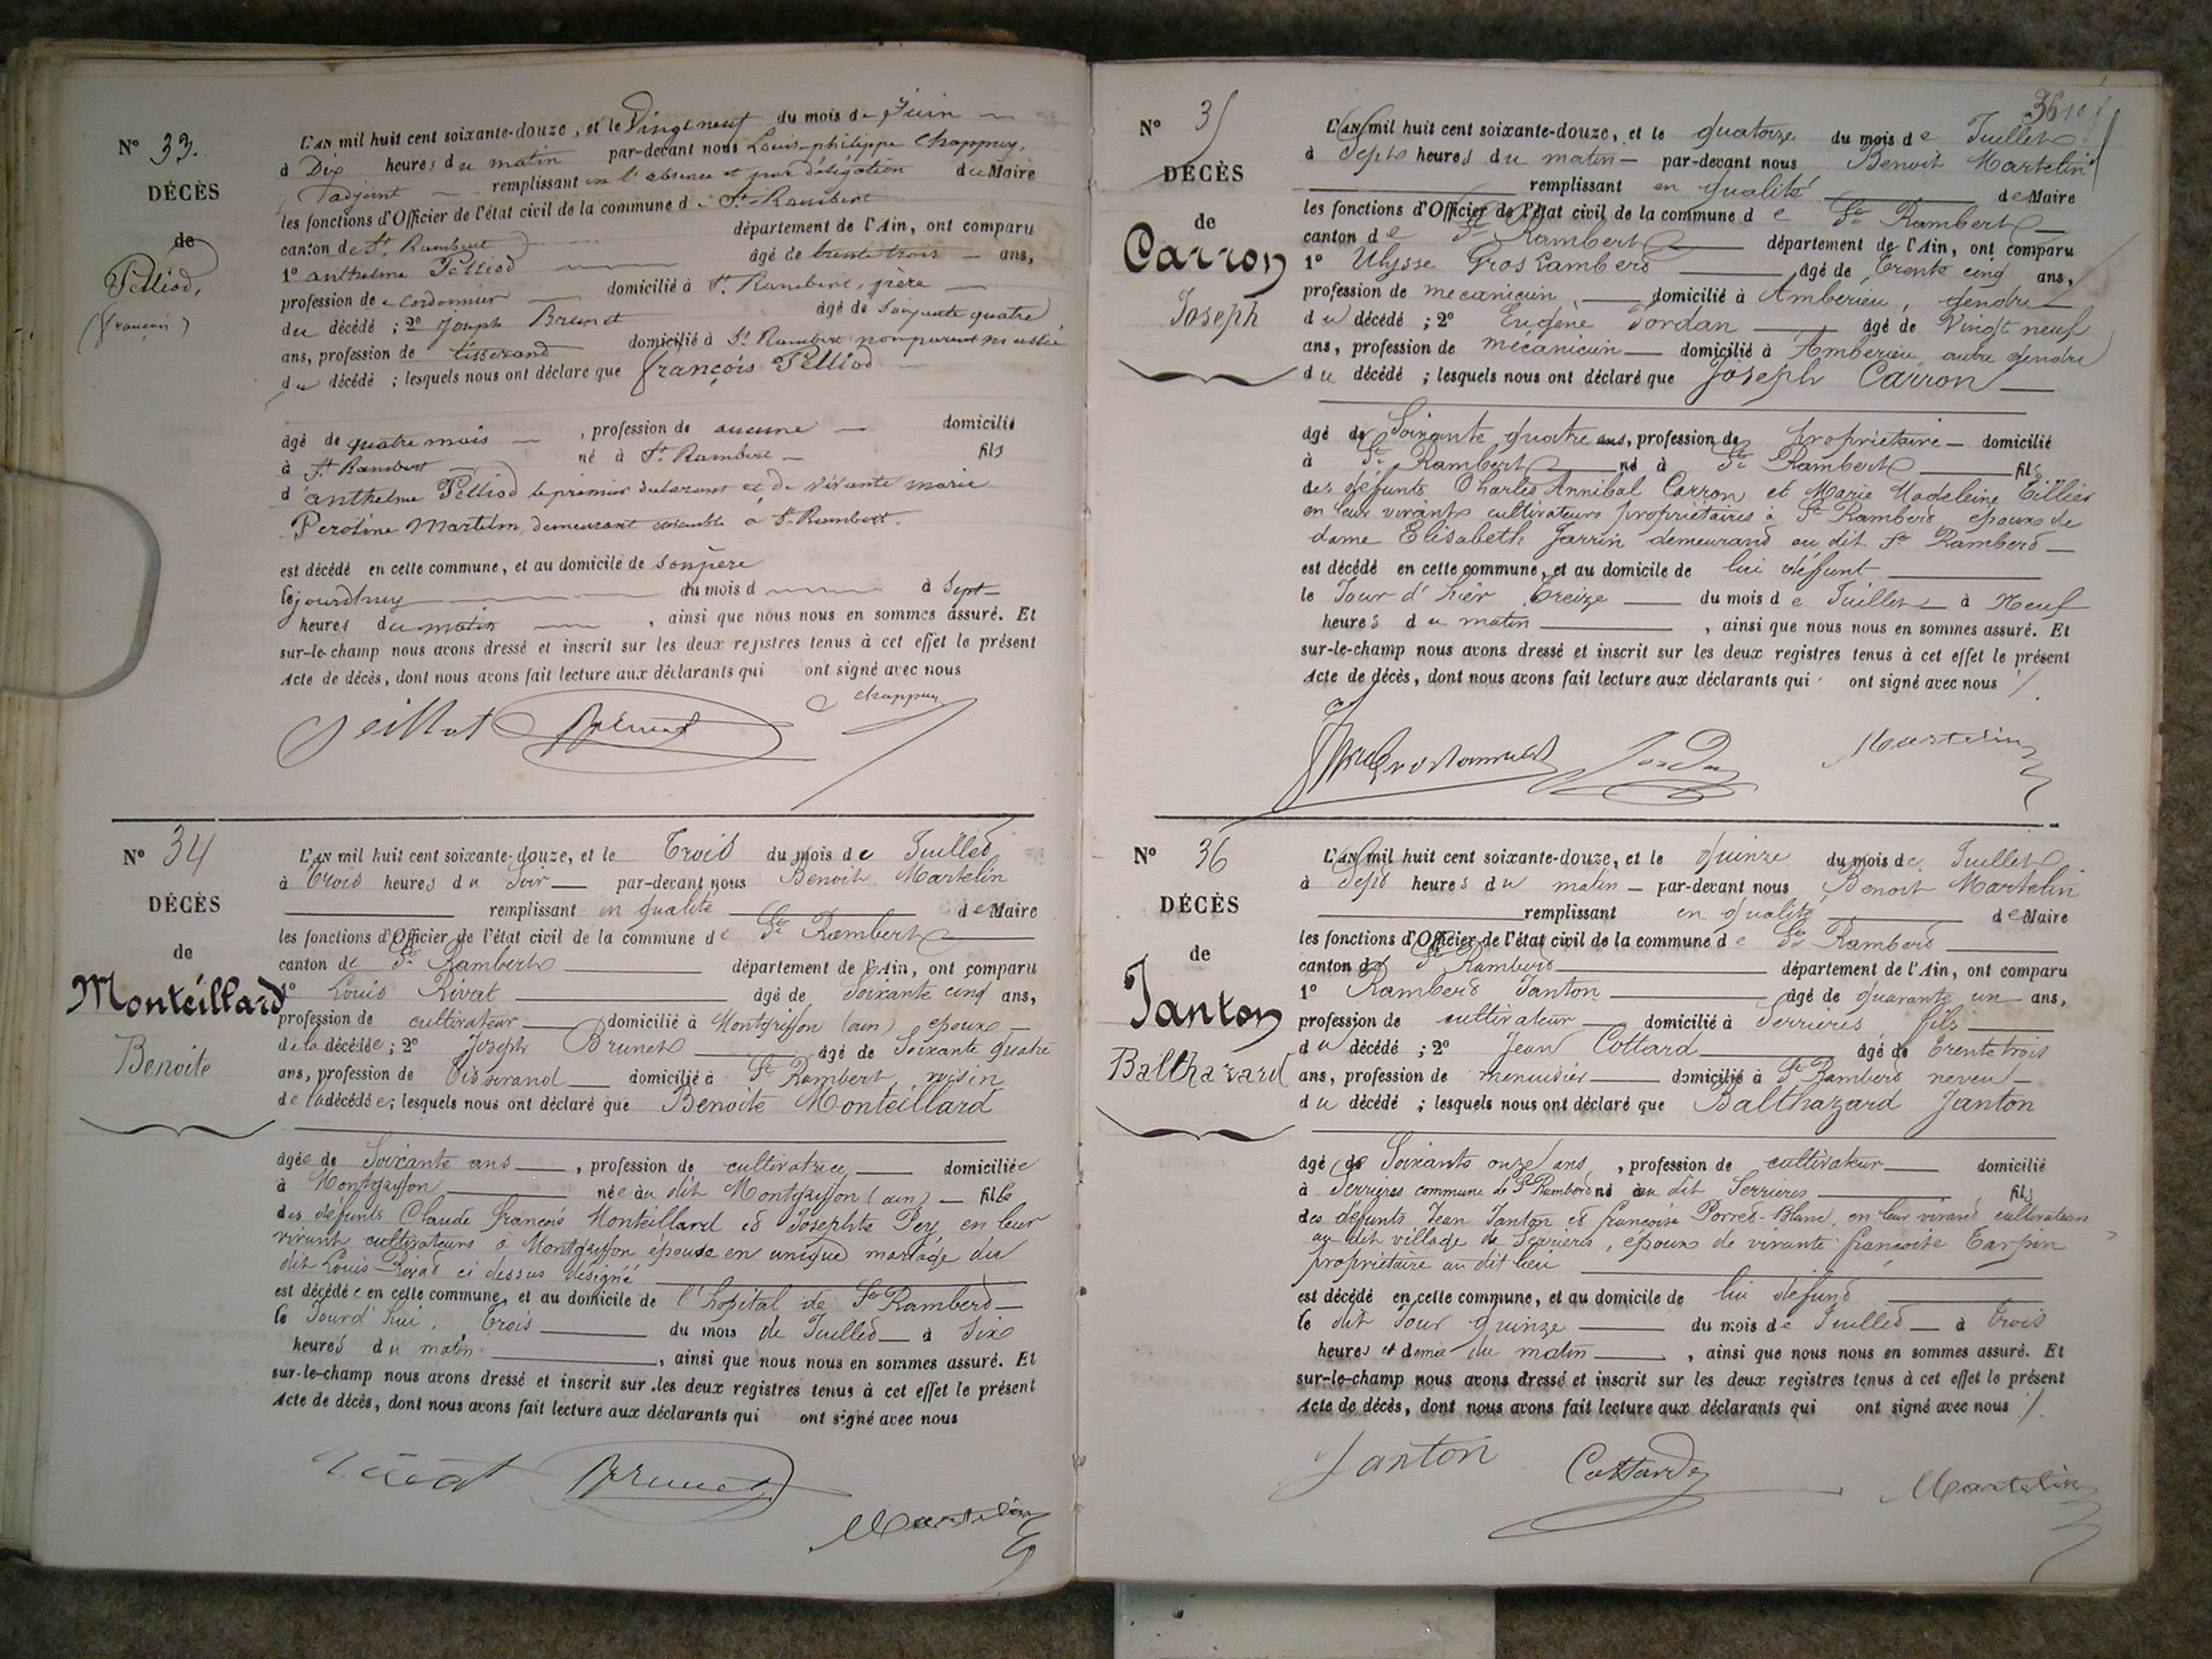 N° 33.
DÉCÈS
de
Pelliod,
(françois)
L'AN mil huit cent soixante-douze, et le Vingt neuf du mois de Juin
à Dix heures du matin par-devant nous Louis-philippe Chappuy,
l'adjoint remplissant en l'absence et par délégation du Maire
les fonctions d'Officier de l'état civil de la commune de St-Rambert
canton de St. Rambert département de l'Ain, ont comparu
1° anthelme Pelliod âgé de trente trois ans,
profession de cordonnier domicilié à St. Rambert, père
du décédé ; 2° joseph Brunet âgé de Soixante quatre
ans, profession de tisserand domicilié à St Rambert non parent ni allié
du décédé ; lesquels nous ont déclaré que françois Pelliod
âgé de quatre mois , profession de aucune domicilié
à St Rambert né à St. Rambert fils
d'anthelme Pelliod le premier déclarant et de vivante marie
Perotine Martelin, demeurant ensemble à St-Rambert.
est décédé en cette commune, et au domicile de son père
le jourdhuy du mois d à Sept
heures du matin , ainsi que nous nous en sommes assuré. Et
sur-le-champ nous avons dressé et inscrit sur les deux registres tenus à cet effet le présent
Acte de décès, dont nous avons fait lecture aux déclarants qui ont signé avec nous
Chappuy
Brunet
N° 34
DÉCÈS
de
Monteillard
Benoite
L'AN mil huit cent soixante-douze, et le Trois du mois de Juillet
à Trois heures du Soir par-devant nous Benoit Martelin
remplissant en qualité de Maire
les fonctions d'Officier de l'état civil de la commune de St Rambert
canton de St Rambert département de l'Ain, ont comparu
1° Louis Rivat âgé de Soixante cinq ans,
profession de cultivateur domicilié à Montgriffon (ain) époux
de la décédée ; 2° Joseph Brunet âgé de Soixante quatre
ans, profession de Tisserand domicilié à St Rambert, voisin
de la décédée ; lesquels nous ont déclaré que Benoite Monteillard
âgée de Soixante ans , profession de cultivatrice domiciliée
à Montgriffon née au dit Montgriffon (ain) fille
des défunts Claude francois Monteillard et Josephte Pey, en leur
vivant cultivateurs à Montgriffon épouse en unique mariage du
dit Louis Rivat ci dessus désigné
est décédée en cette commune, et au domicile de l'hopital de St Rambert
le Jourd'hui, Trois du mois de Juillet à Six
heures du matin , ainsi que nous nous en sommes assuré. Et
sur-le-champ nous avons dressé et inscrit sur les deux registres tenus à cet effet le présent
Acte de décès, dont nous avons fait lecture aux déclarants qui ont signé avec nous
Rivat Brunet
Martelin
36
N° 35
DÉCÈS
de
Carron
Joseph
L'AN mil huit cent soixante-douze, et le quatorze du mois de Juillet
à Sept heures du matin par-devant nous Benoit Martelin
remplissant en qualité de Maire
les fonctions d'Officier de l'état civil de la commune de St Rambert
canton de St Rambert département de l'Ain, ont comparu
1° Ulysse Gros Lambert âgé de Trente cinq ans,
profession de mecanicien, domicilié à Amberieu, gendre
du décédé ; 2° Eugène Jordan âgé de Vingt neuf
ans, profession de mécanicien domicilié à Amberieu autre gendre
du décédé ; lesquels nous ont déclaré que Joseph Carron
âgé de Soixante quatre ans, profession de propriétaire domicilié
à St Rambert né à St Rambert fils
des défunts Charles Annibal Carron et Marie Madeleine Tillier
en leur vivant cultivateurs propriétaires à St Rambert, époux de
dame Elisabeth Jarrin demeurand au dit St Rambert
est décédé en cette commune, et au domicile de lui défunt
le Jour d'hier Treize du mois de Juillet à Neuf
heures du matin , ainsi que nous nous en sommes assuré. Et
sur-le-champ nous avons dressé et inscrit sur les deux registres tenus à cet effet le présent
Acte de décès, dont nous avons fait lecture aux déclarants qui ont signé avec nous
Jordan Martelin
N° 36
DÉCÈS
de
Janton
Balthazard
L'AN mil huit cent soixante-douze, et le quinze du mois de Juillet
à Sept heures du matin par-devant nous Benoit Martelin
remplissant en qualité de Maire
les fonctions d'Officier de l'état civil de la commune de St Rambert
canton de St Rambert département de l'Ain, ont comparu
1° Rambert Janton âgé de quarante un ans,
profession de cultivateur domicilié à Serrières, fils
du décédé ; 2° Jean Cottard âgé de Trente trois
ans, profession de menuisier domicilié à St Rambert neveu
du décédé ; lesquels nous ont déclaré que Balthazard Janton
âgé de Soixante onze ans , profession de cultivateur domicilié
à Serrières commune de St Rambert né au dit Serrieres fils
des défunts Jean Janton et francoise Porret-Blanc, en leur vivant cultivateurs
au dit village de Serrieres, époux de vivante francoise Tarpin
propriétaire au dit lieu
est décédé en cette commune, et au domicile de lui défunt
le dit Jour quinze du mois de Juillet à Trois
heures et demie du matin , ainsi que nous nous en sommes assuré. Et
sur-le-champ nous avons dressé et inscrit sur les deux registres tenus à cet effet le présent
Acte de décès, dont nous avons fait lecture aux déclarants qui ont signé avec nous
Janton Cottard Martelin